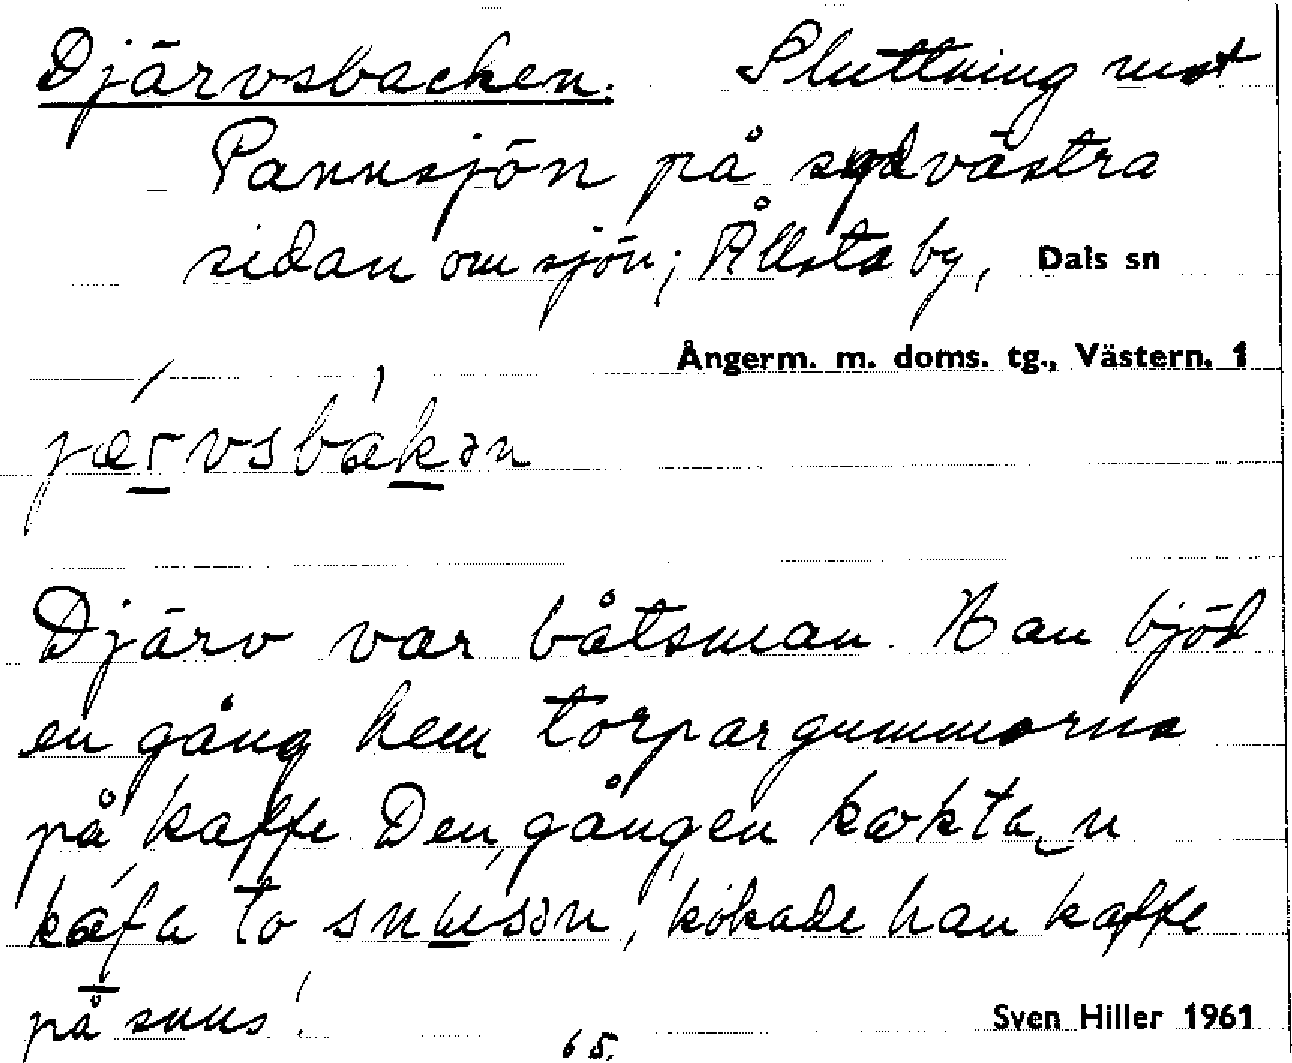 Djärvsbacken. Sluttning mot
Pannsjön på sydvästra
sidan om sjön; Ållsta by, Dals sn
Ångerm. m. doms. tg., Västern. 1
jærvsbakən
Djärv var båtsman. Han bjöd
en gång hem torpargummorna
på kaffe. Den gången kokta n
kafa to snusən, 'kokade han kaffe
på snus'.
Sven Hiller 1961
65.